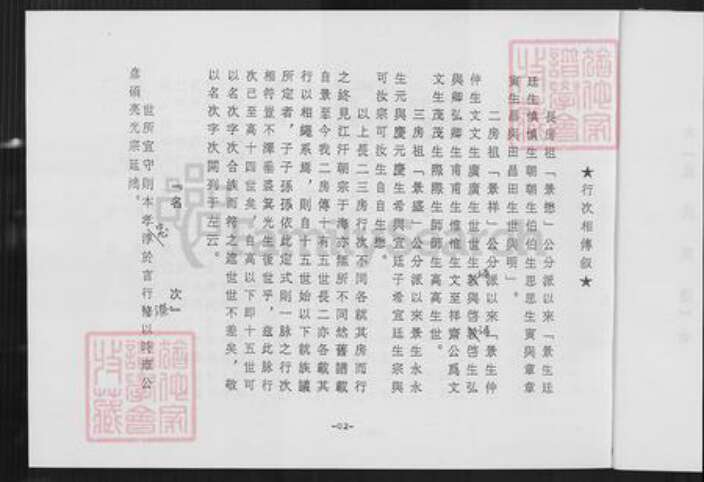 ★行次相傳叙★
長房祖「景懋」公分派以來「景生廷
廷生慎慎生朝朝生伯伯生思思生寅與章章
寅生昌與田昌田生世與明」。
二房祖「景祥」公分派以來「景生仲
仲生文文生廣廣生世世生敦與啓敦啓生弘
與卿弘卿生甫甫生惟惟生文至祥齋公爲文
文生茂茂生際際生師師生高高生世。
三房祖「景盛」公分派以來景生永永
生元與慶元慶生希與宜廷子希宜廷生宗與
可汝宗可汝生自自生懋。
以上長二三房行次不同各就其房而行
之終見江汗朝宗于海亦無所不同然舊譜載
自景至今我二房傳十有五世長二亦各載其
行以相繩系焉，則自十五世始以下就族議
所定者，子子孫孫依此定式則一脉之行次
相符豈不澤垂裘箕光生後世乎，兹此脉行
次己至高十四世矣，自高以下即十五世可
以名次字次合族而符之遮世世不差矣，敬
以名次字次開列于左云。
『名 次』
世所宜守則本孝 於言行修以 公
彦碩亮光宗延鴻。
-02-